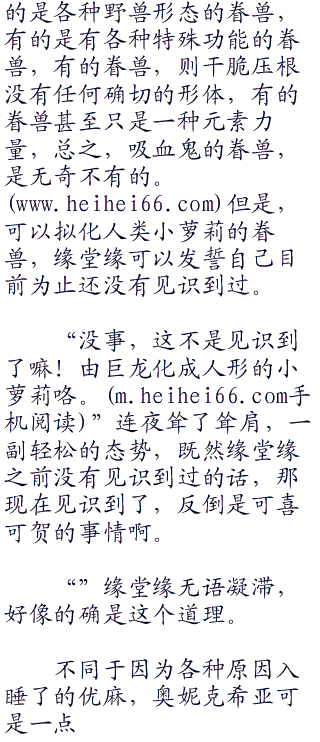 的是各种野兽形态的眷兽，
有的是有各种特殊功能的眷
兽，有的眷兽，则干脆压根
没有任何确切的形体，有的
眷兽甚至只是一种元素力
量，总之，吸血鬼的眷兽，
是无奇不有的。
(www.heihei66.com)但是，
可以拟化人类小萝莉的眷
兽，缘堂缘可以发誓自己目
前为止还没有见识到过。
“没事，这不是见识到
了嘛！由巨龙化成人形的小
萝莉咯。(m.heihei66.com手
机阅读)”连夜耸了耸肩，一
副轻松的态势，既然缘堂缘
之前没有见识到过的话，那
现在见识到了，反倒是可喜
可贺的事情啊。
“”缘堂缘无语凝滞，
好像的确是这个道理。
不同于因为各种原因入
睡了的优麻，奥妮克希亚可
是一点